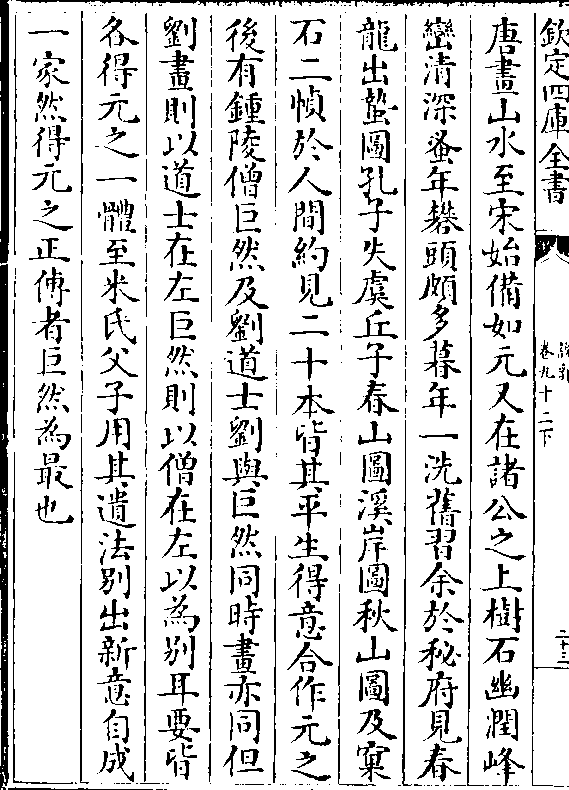 欽定四庫全書
說郛
卷九十二下
二十三
唐畫山水至宋始備如元又在諸公之上樹石幽潤峰
巒清深蚤年礬頭頗多暮年一洗舊習余於秘府見春
龍出蟄圖孔子失虞丘子春山圖溪岸圖秋山圖及窠
石二幀於人間約見二十本皆其平生得意合作元之
後有鍾陵僧巨然及劉道士劉與巨然同時畫亦同但
劉畫則以道士在左巨然則以僧在左以為别耳要皆
各得元之一體至米氏父子用其遺法别出新意自成
一家然得元之正傳者巨然為最也